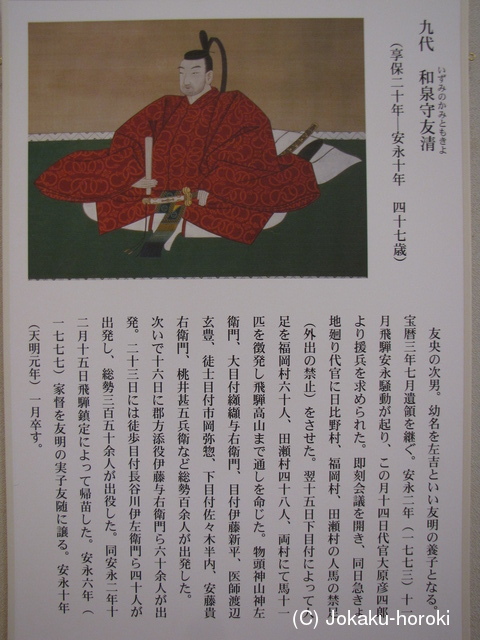 九代　和泉守友清
いずみのかみともきよ
（享保二十年―安永十年　四十七歳）
友央の次男。幼名を左吉といい友明の養子となる。
宝暦三年七月遺領を継ぐ。安永二年（一七七三）十一
月飛騨安永騒動が起り、この月十四日代官大原彦四郎
より援兵を求められた。即刻会議を開き、同日急きょ
地廻り代官に日比野村、福岡村、田瀬村の人馬の禁足
（外出の禁止）をさせた。翌十五日下目付によって人
足を福岡村六十人、田瀬村四十八人、両村にて馬十一
匹を徴発し飛騨高山まで通しを命じた。物頭神山神左
衛門、大目付纐纈与右衛門、目付伊藤新平、医師渡辺
玄豊、徒士目付市岡弥惣、下目付佐々木半内、安藤貴
右衛門、桃井甚五兵衛など総勢百余人が出発した。
次いで十六日に郡方添役伊藤与右衛門ら六十余人が出
発。二十三日には徒歩目付長谷川伊左衛門ら四十人が
出発し、総勢三百五十余人が出役した。同安永二年十
二月十五日飛騨鎮定によって帰苗した。安永六年（
一七七七）家督を友明の実子友随に譲る。安永十年
（天明元年）一月卒す。
(C) Jokaku-horoki